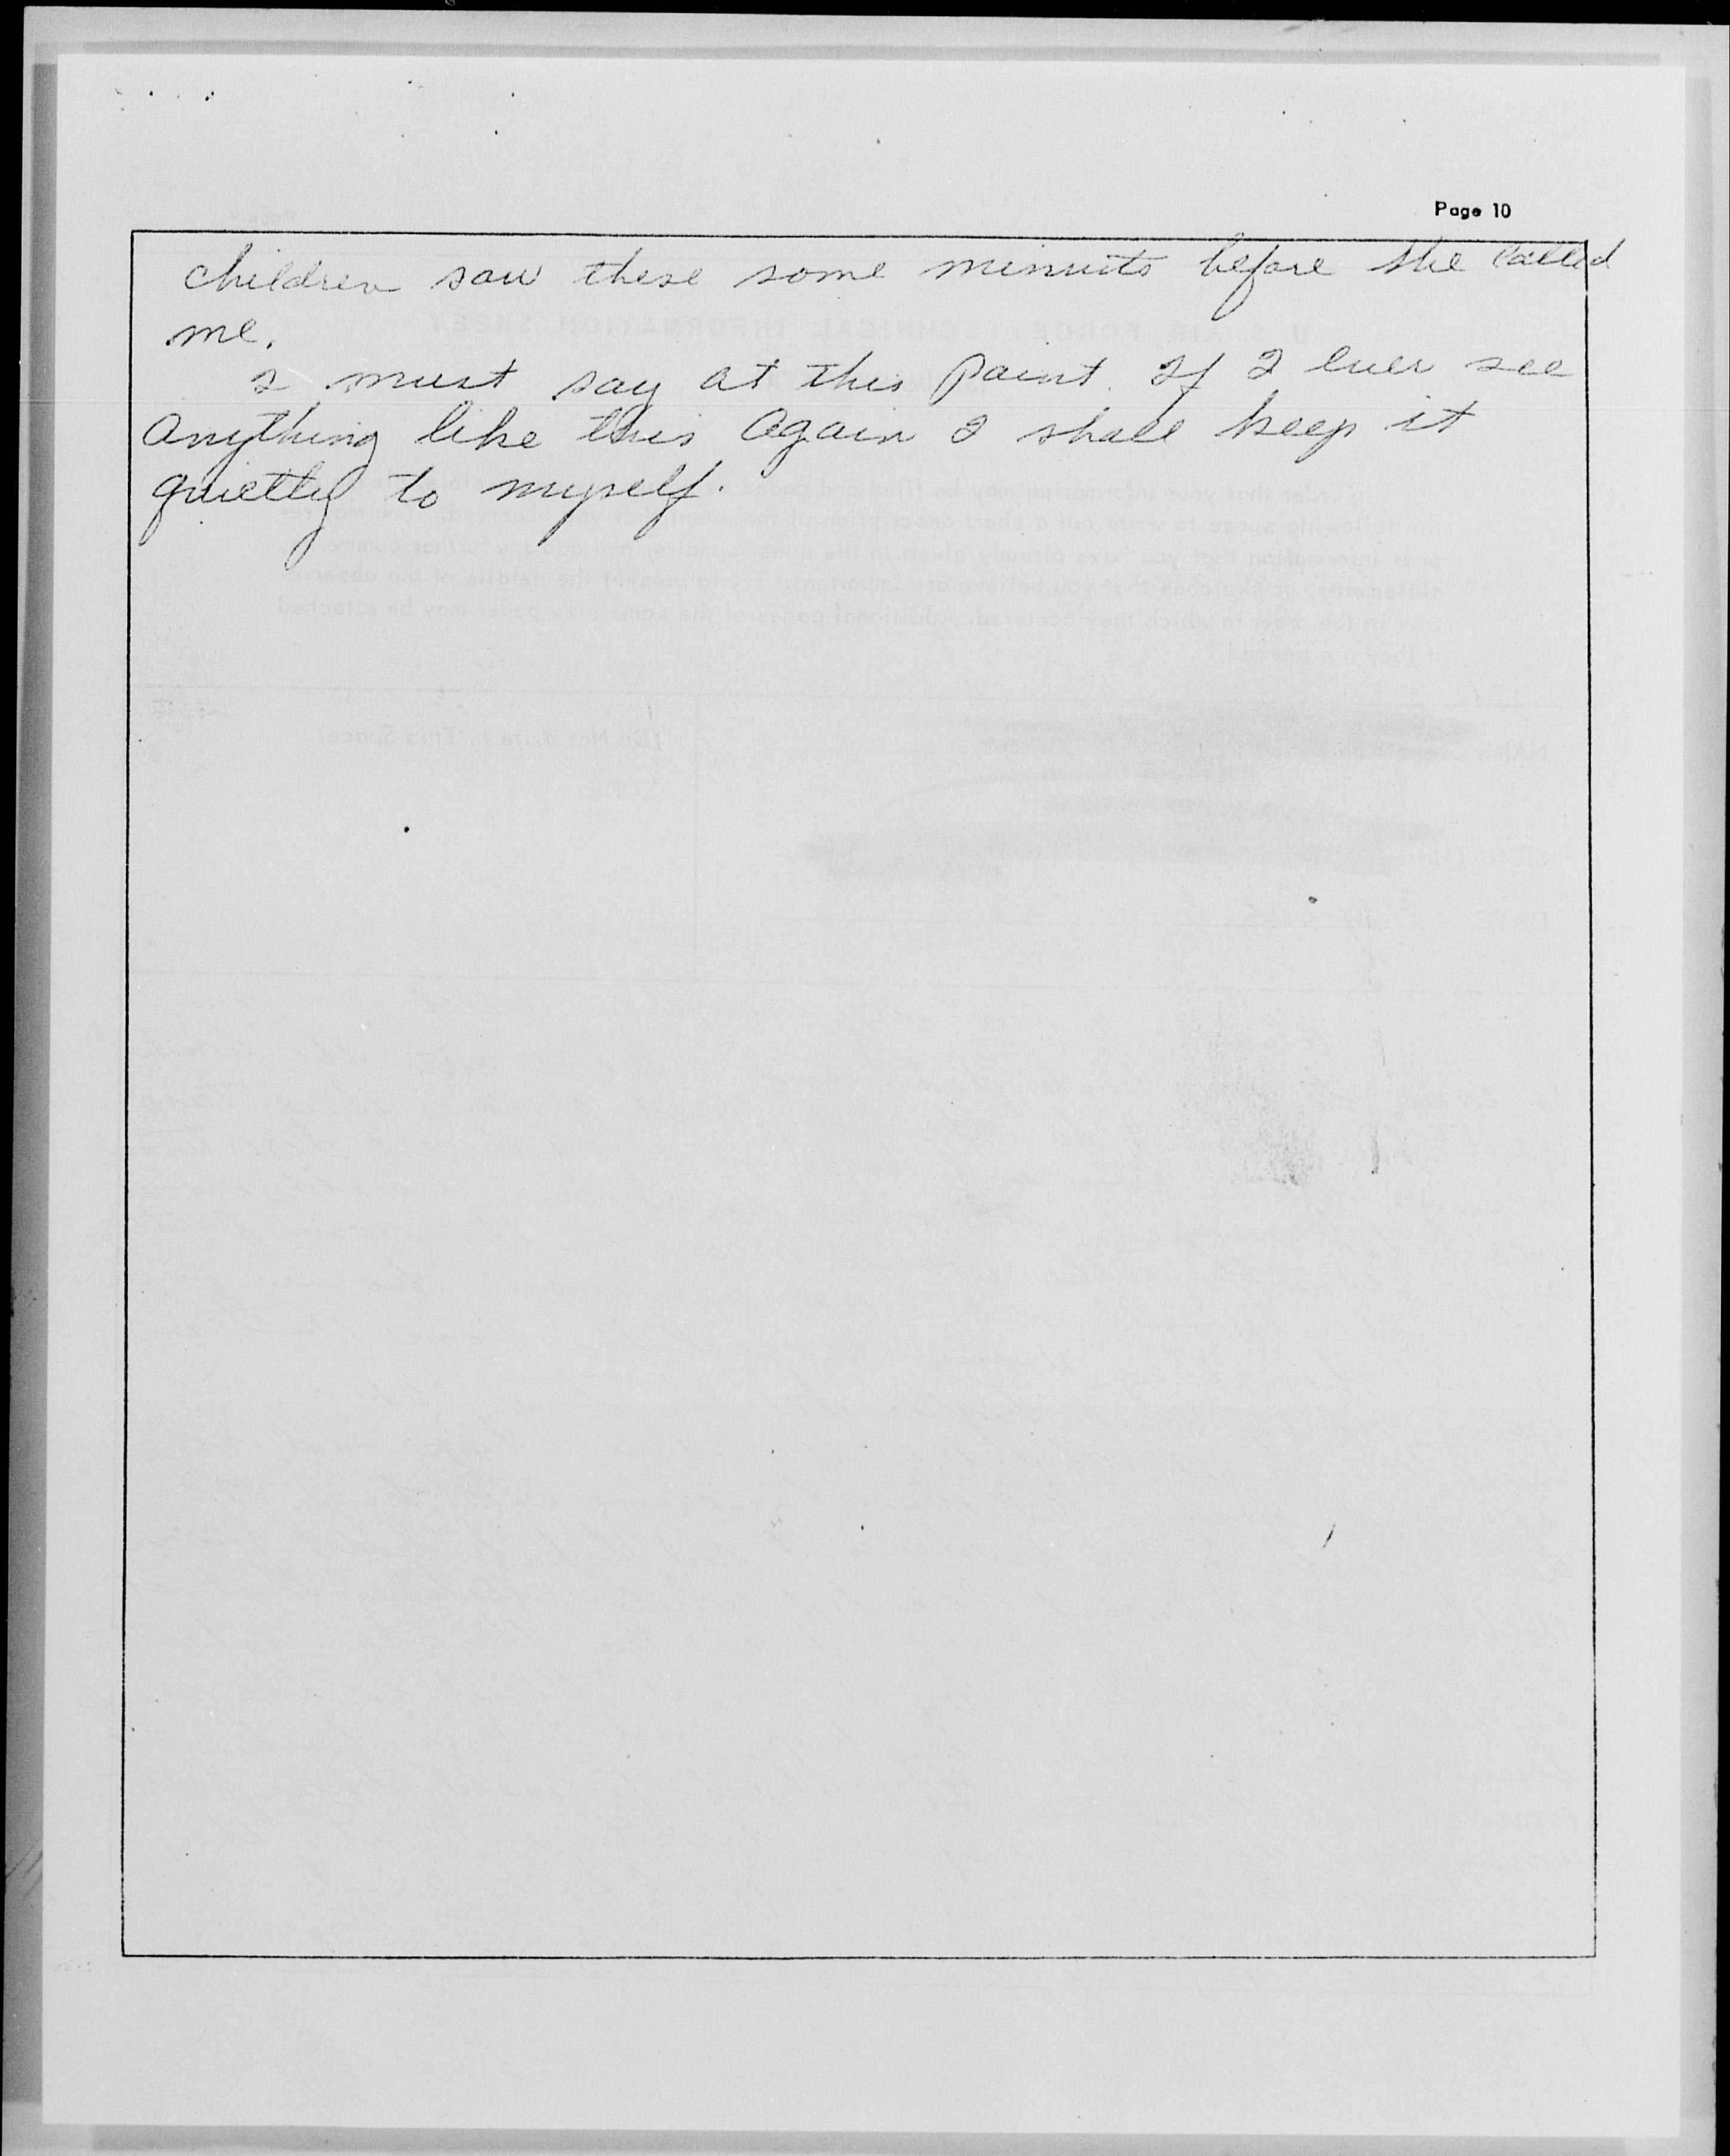 Page 10
children saw these some minuits before she called
me.
I must say at this point. If I ever see
anything like this again I shall keep it
quietly to myself.